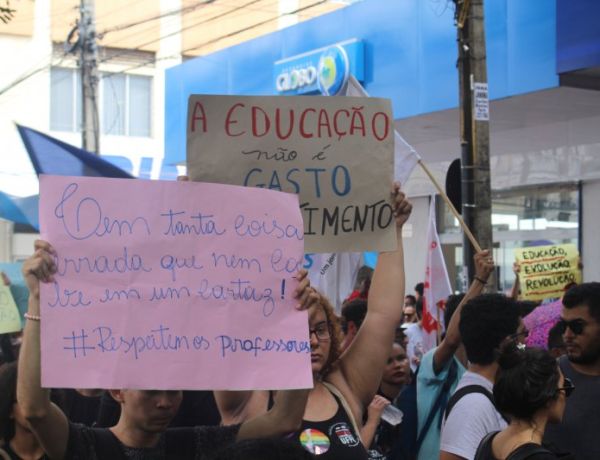 GLOBO
A EDUCAÇÃO
não é
GASTO
TIMENTO
Tem tanta coisa
errada que nem ca
be em um cartaz!
#Respeitem os professores
EDUCAÇÃO,
EVOLUÇÃO
REVOLUÇÃO